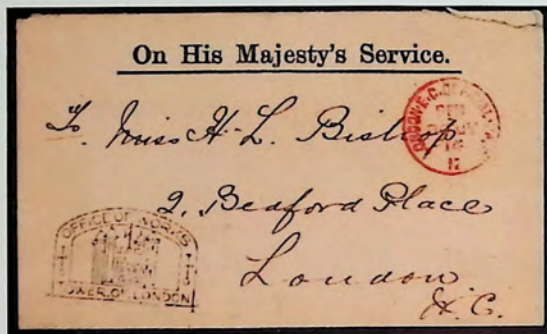 On His Majesty's Service.
To Miss H. L. Bishop
2, Bedford Place
London
W.C.
OFFICE OF WORKS
TOWER OF LONDON
LONDON E.C. OFFICIAL PAID